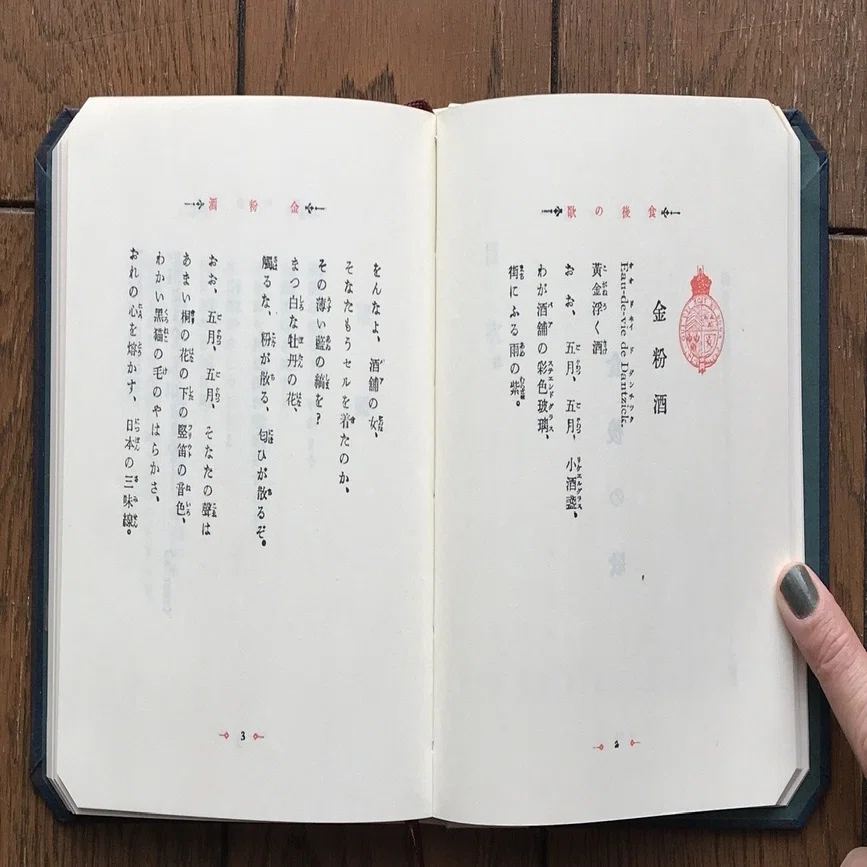 食後の歌
金粉酒
Eau-de-vie de Dantzick.
黃金浮く酒
おお、五月、五月、小酒盞、
わが酒舗の彩色玻璃、
街にふる雨の紫。
2
金粉酒
をんなよ、酒舗の女、
そなたもうセルを着たのか、
その薄い藍の縞を?
まつ白な牡丹の花、
觸るな、粉が散る、匂ひが散るぞ。
おお、五月、五月、そなたの聲は
あまい桐の花の下の竪笛の音色、
わかい黒猫の毛のやはらかさ、
おれの心を熔かす、日本の三味線。
3